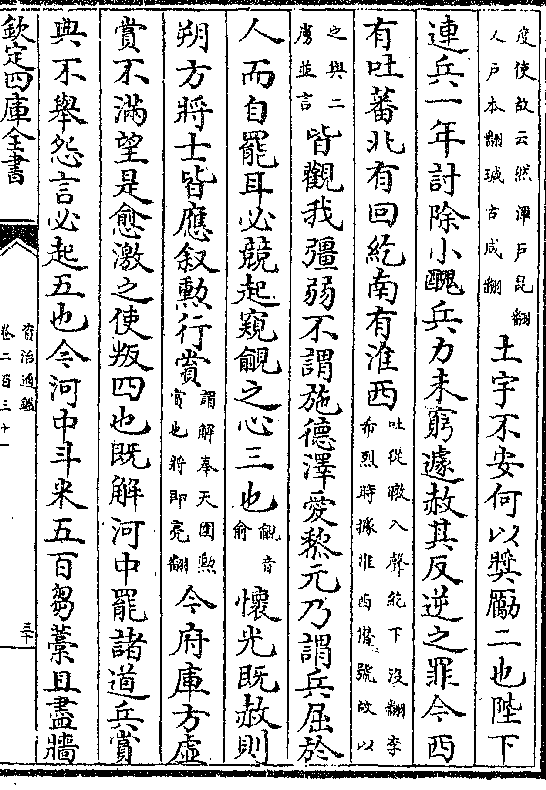 度使故云然渾戶昆翻
人戶本翻瑊古咸翻
土宇不安何以奬勵二也陛下
連兵一年討除小醜兵力未窮遽赦其反逆之罪今西
有吐蕃北有回紇南有淮西
吐從暾入聲紇下没翻李
希烈時據淮西僭號故以
之與二
虜並言
皆觀我彊弱不謂施德澤愛黎元乃謂兵屈於
人而自罷耳必競起窺覦之心三也
覦音
俞
懷光既赦則
朔方將士皆應叙勲行賞
謂解奉天圍勲
賞也將即亮翻
今府庫方虚
賞不滿望是愈激之使叛四也既解河中罷諸道兵賞
典不舉怨言必起五也今河中斗米五百芻藁且盡牆
欽定四庫全書
資治通鑑
卷二百三十一
三十